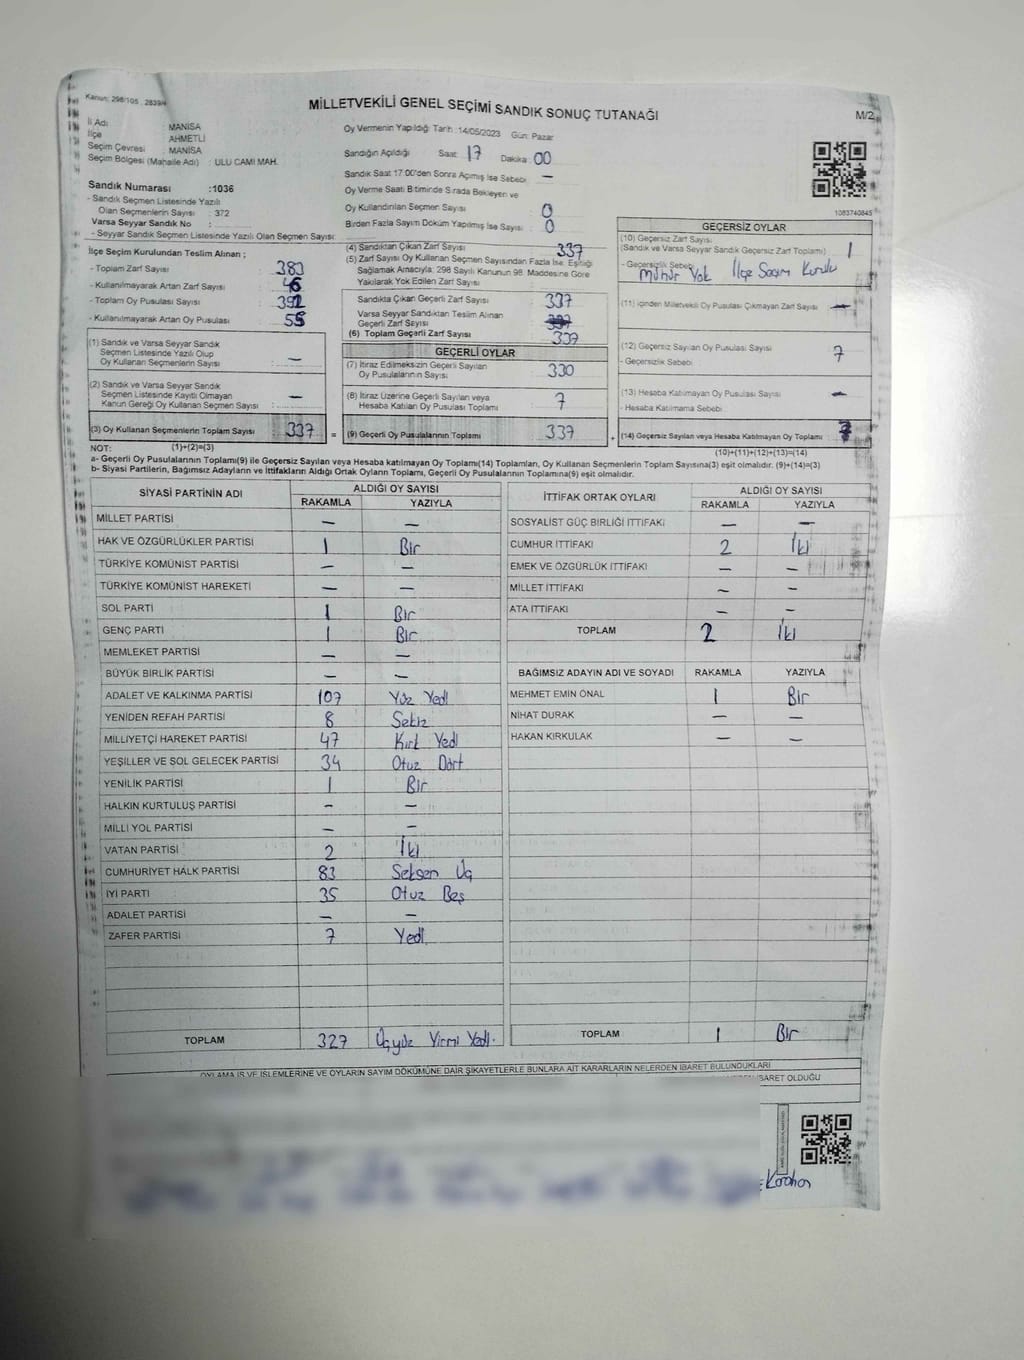 Kanun: 298/105 , 2839/4
MİLLETVEKİLİ GENEL SEÇİMİ SANDIK SONUÇ TUTANAĞI
M/2
İl Adı : MANİSA
İlçe : AHMETLİ
Seçim Çevresi : MANİSA
Seçim Bölgesi (Mahalle Adı) : ULU CAMİ MAH.
Sandık Numarası :1036
- Sandık Seçmen Listesinde Yazılı
Olan Seçmenlerin Sayısı : 372
Varsa Seyyar Sandık No :
- Seyyar Sandık Seçmen Listesinde Yazılı Olan Seçmen Sayısı:
Oy Vermenin Yapıldığı Tarih :14/05/2023 Gün: Pazar
Sandığın Açıldığı Saat: 17 Dakika: 00
Sandık Saat 17:00'den Sonra Açılmış İse Sebebi : —
Oy Verme Saati Bitiminde Sırada Bekleyen ve
Oy Kullandırılan Seçmen Sayısı : 0
Birden Fazla Sayım Döküm Yapılmış İse Sayısı : 0
1083740845
İlçe Seçim Kurulundan Teslim Alınan ;
- Toplam Zarf Sayısı : 383
- Kullanılmayarak Artan Zarf Sayısı : 46
- Toplam Oy Pusulası Sayısı : 392
- Kullanılmayarak Artan Oy Pusulası : 55
(1) Sandık ve Varsa Seyyar Sandık
Seçmen Listesinde Yazılı Olup
Oy Kullanan Seçmenlerin Sayısı : —
(2) Sandık ve Varsa Seyyar Sandık
Seçmen Listesinde Kayıtlı Olmayan
Kanun Gereği Oy Kullanan Seçmen Sayısı : —
(3) Oy Kullanan Seçmenlerin Toplam Sayısı : 337
(4) Sandıktan Çıkan Zarf Sayısı : 337
(5) Zarf Sayısı Oy Kullanan Seçmen Sayısından Fazla İse, Eşitliği
Sağlamak Amacıyla; 298 Sayılı Kanunun 98. Maddesine Göre
Yakılarak Yok Edilen Zarf Sayısı :
Sandıkta Çıkan Geçerli Zarf Sayısı : 337
Varsa Seyyar Sandıktan Teslim Alınan
Geçerli Zarf Sayısı :
(6) Toplam Geçerli Zarf Sayısı : 337
GEÇERLİ OYLAR
(7) İtiraz Edilmeksizin Geçerli Sayılan
Oy Pusulalarının Sayısı : 330
(8) İtiraz Üzerine Geçerli Sayılan veya
Hesaba Katılan Oy Pusulası Toplamı : 7
= (9) Geçerli Oy Pusulalarının Toplamı : 337
GEÇERSİZ OYLAR
(10) Geçersiz Zarf Sayısı
(Sandık ve Varsa Seyyar Sandık Geçersiz Zarf Toplamı) : 1
- Geçersizlik Sebebi
Mühür Yok İlçe Seçim Kurulu
(11) İçinden Milletvekili Oy Pusulası Çıkmayan Zarf Sayısı : —
(12) Geçersiz Sayılan Oy Pusulası Sayısı : 7
- Geçersizlik Sebebi
(13) Hesaba Katılmayan Oy Pusulası Sayısı : —
- Hesaba Katılmama Sebebi
+ (14) Geçersiz Sayılan veya Hesaba Katılmayan Oy Toplamı : 7
NOT: (1)+(2)=(3)
(10)+(11)+(12)+(13)=(14)
a- Geçerli Oy Pusulalarının Toplamı(9) ile Geçersiz Sayılan veya Hesaba katılmayan Oy Toplamı(14) Toplamları, Oy Kullanan Seçmenlerin Toplam Sayısına(3) eşit olmalıdır. (9)+(14)=(3)
b- Siyasi Partilerin, Bağımsız Adayların ve İttifakların Aldığı Ortak Oyların Toplamı, Geçerli Oy Pusulalarının Toplamına(9) eşit olmalıdır.
SİYASİ PARTİNİN ADI ALDIĞI OY SAYISI
RAKAMLA YAZIYLA
MİLLET PARTİSİ — —
HAK VE ÖZGÜRLÜKLER PARTİSİ 1 Bir
TÜRKİYE KOMÜNİST PARTİSİ — —
TÜRKİYE KOMÜNİST HAREKETİ — —
SOL PARTİ 1 Bir
GENÇ PARTİ 1 Bir
MEMLEKET PARTİSİ — —
BÜYÜK BİRLİK PARTİSİ — —
ADALET VE KALKINMA PARTİSİ 107 Yüz Yedi
YENİDEN REFAH PARTİSİ 8 Sekiz
MİLLİYETÇİ HAREKET PARTİSİ 47 Kırk Yedi
YEŞİLLER VE SOL GELECEK PARTİSİ 34 Otuz Dört
YENİLİK PARTİSİ 1 Bir
HALKIN KURTULUŞ PARTİSİ — —
MİLLİ YOL PARTİSİ — —
VATAN PARTİSİ 2 İki
CUMHURİYET HALK PARTİSİ 83 Seksen Üç
İYİ PARTİ 35 Otuz Beş
ADALET PARTİSİ — —
ZAFER PARTİSİ 7 Yedi
TOPLAM 327 Üçyüz Yirmi Yedi.
İTTİFAK ORTAK OYLARI ALDIĞI OY SAYISI
RAKAMLA YAZIYLA
SOSYALİST GÜÇ BİRLİĞİ İTTİFAKI — —
CUMHUR İTTİFAKI 2 İki
EMEK VE ÖZGÜRLÜK İTTİFAKI — —
MİLLET İTTİFAKI — —
ATA İTTİFAKI — —
TOPLAM 2 İki
BAĞIMSIZ ADAYIN ADI VE SOYADI RAKAMLA YAZIYLA
MEHMET EMİN ÖNAL 1 Bir
NİHAT DURAK — —
HAKAN KIRKULAK — —
TOPLAM 1 Bir
OYLAMA İŞ VE İŞLEMLERİNE VE OYLARIN SAYIM DÖKÜMÜNE DAİR ŞİKAYETLERLE BUNLARA AİT KARARLARIN NELERDEN İBARET BULUNDUKLARI
İBARET OLDUĞU